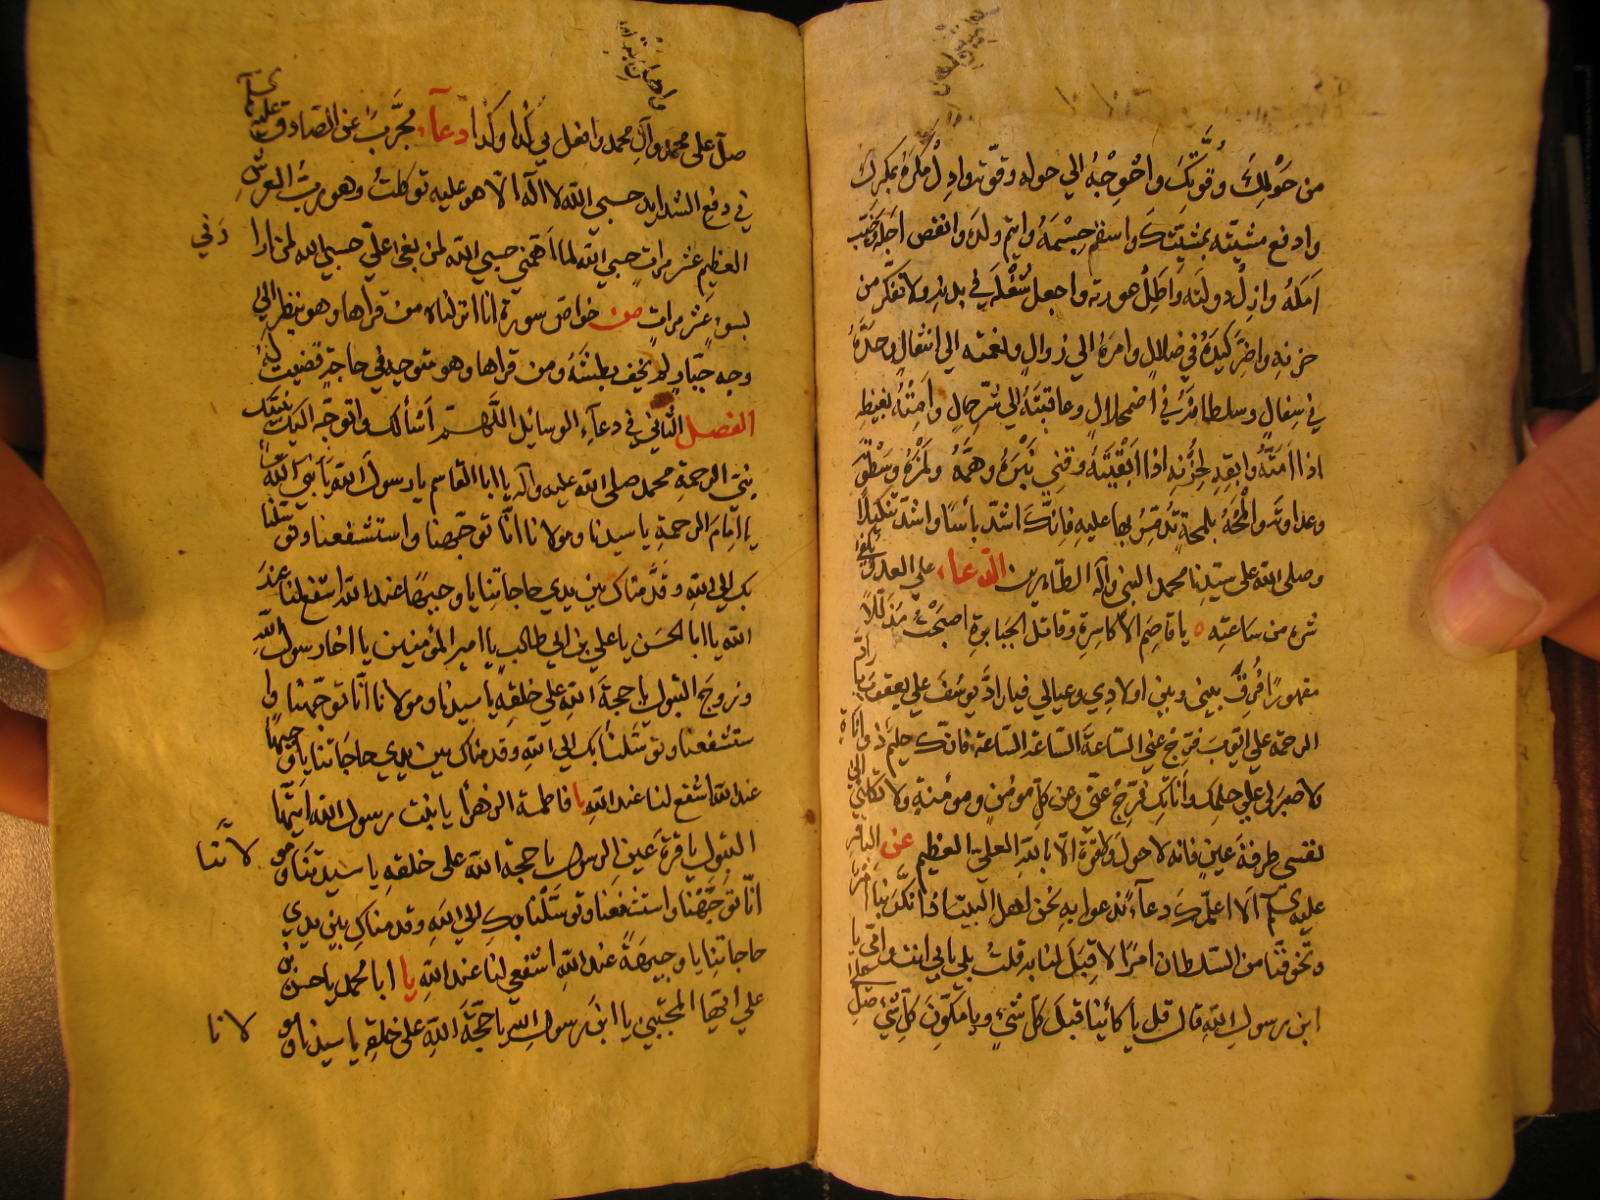 من حولك وقوتك واحوجه الي حوله وقوته وادل مكره بمكرك
وادفع مشيته بمشيتك واسقم جسمه وايتم ولده وانقص اجله وخيب
امله وازل دولته واطل عورته واجعل شغله في بدنه ولا تفكه من
حزنه واضر كيده في ضلال وامره الي زوال ونعمته الي انتقال وجده
في سفال وسلطانه في اضمحلال وعاقبته الي شر حال وامته بغيظه
اذا امته وابقه لحزنه اذا ابقيته وقني شره وهمه ولمزه وسطوته
وعداوته والمحه بلمحة تدمر بها عليه فانك اشد بأسا واشد تنكيلا
وصلى الله على سيدنا محمد النبي وآله الطاهرين الدعاء علي العدو يكفي
شره من ساعته يا قاصم الاكاسرة وقاتل الجبابرة اصبحت مذللا
مقهورا فرق بيني وبين اولادي وعيالي فيا راد يوسف علي يعقوب يا راد
الرحمة علي ايوب فرج عني الساعة الساعة فانك حليم ذو اناة
ولا صبر لي علي حلمك وأناتك فرج عني وعن كل مؤمن ومؤمنة ولا تكلني الي
نفسي طرفة عين فانه لا حول ولا قوة الا بالله العلي العظيم عن الباقر
عليه السلام الا اعلمك دعاء ندعوا به نحن اهل البيت اذا نكربنا امر
وتخوفنا من السلطان امرا لا قبل لنا به قلت بلي بابي انت وامي يا
ابن رسول الله قال قل يا كائنا قبل كل شيء ويا مكون كل شيء صل علي
صل على محمد وآل محمد وافعل بي كذا وكذا دعآء مجرب عن الصادق عليه السلام
في دفع الشدايد حسبي الله لا اله الا هو عليه توكلت وهو رب العرش
العظيم عشر مرات حسبي الله لما اهمني حسبي الله لمن بغى علي حسبي الله لمن ارا دني
بسوء عشر مرات من خواص سورة انا انزلناه من قراها وهو ينظر الي
وجه جبار لم يخف بطشه ومن قراها وهو متوجه في حاجة قضيت
الفصل الثاني في دعاء الوسايل اللهم اني أسألك واتوجه اليك بنبيك
نبي الرحمة محمد صلى الله عليه وآله يا ابا القاسم يا رسول الله يا نبي الله
يا امام الرحمة يا سيدنا ومولانا انا توجهنا واستشفعنا وتوسلنا
بك الي الله وقدمناك بين يدي حاجاتنا يا وجيها عند الله اشفع لنا عند
الله يا ابا الحسن يا علي بن ابي طالب يا امير المؤمنين يا اخا رسول الله
وزوج البتول يا حجة الله علي خلقه يا سيدنا ومولانا انا توجهنا وا
ستشفعنا وتوسلنا بك الي الله وقدمناك بين يدي حاجاتنا يا وجيها
عند الله اشفع لنا عند الله يا فاطمة الزهرا يا بنت رسول الله ايتها
البتول يا قرة عين الرسول يا حجة الله على خلقه يا سيدتنا ومو لاتنا
انا توجهنا واستشفعنا وتوسلنا بك الي الله وقدمناك بين يدي
حاجاتنا يا وجيهة عند الله اشفعي لنا عند الله يا ابا محمد يا حسن بن
علي ايها المجتبي يا ابن رسول الله يا حجة الله على خلقه يا سيدنا ومو لانا